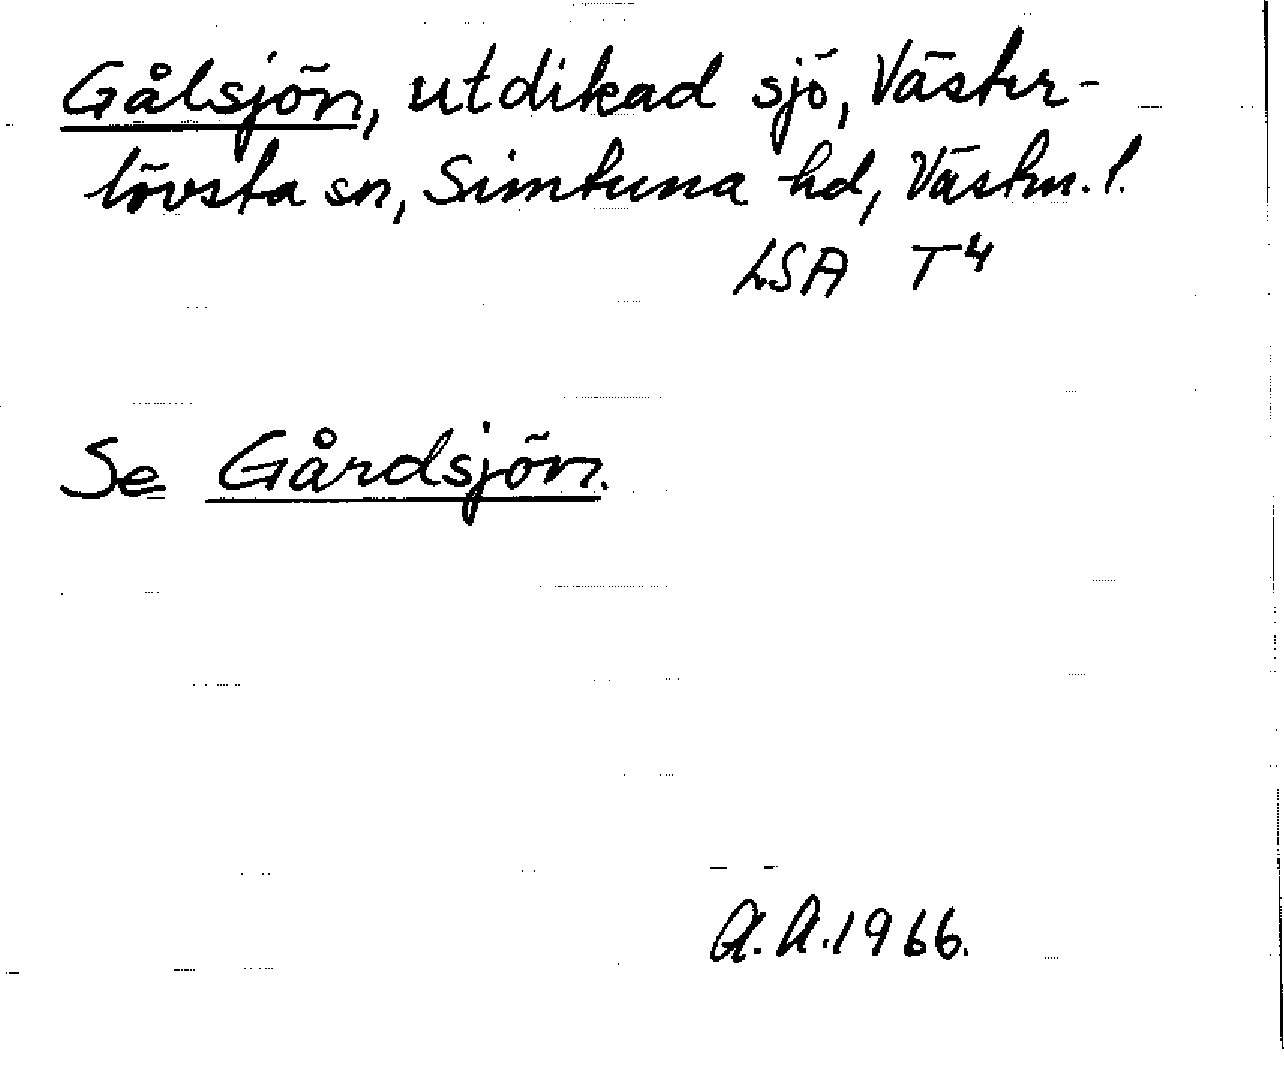 Gålsjön, utdikad sjö, Väster-
lövsta sn, Simtuna hd, Västm. l.
LSA T4
Se Gårdsjön.
A. A. 1966.